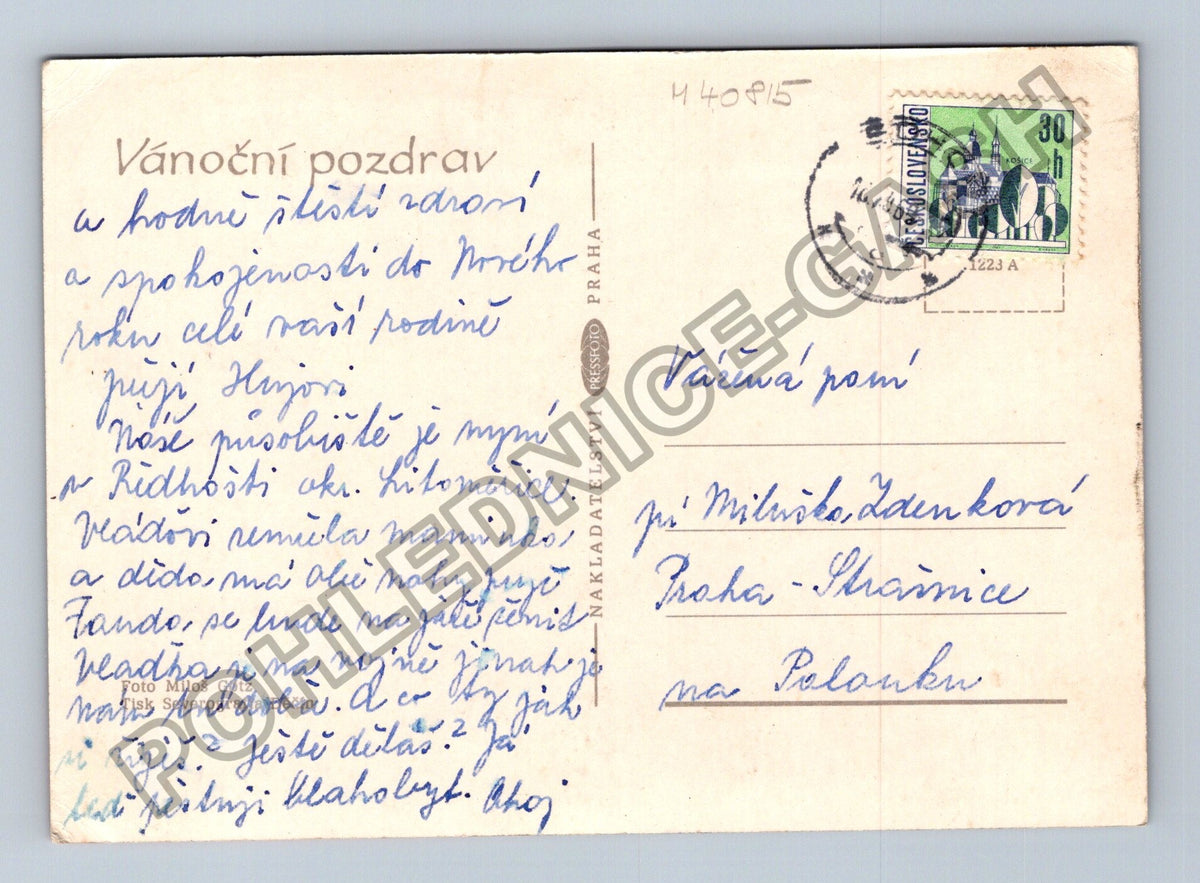 M 40815
Vánoční pozdrav
a hodně štěstí zdraví
a spokojenosti do Nového
roku celé vaší rodině
přejí Hujovi
Naše působiště je nyní
v Ředhošti okr. Litoměřice.
Vláďovi zemřela maminka
a děda má obě nohy pryč
Fanda se bude na jaře ženit
Vlaďka je na vojně jinak je
nám
. A co ty jak
si žiješ? Ještě děláš? Já
teď pěstuji blahobyt. Ahoj
Foto Miloš Götz
Tisk Severografia
NAKLADATELSTVÍ PRESSFOTO PRAHA
ČESKOSLOVENSKO
30 h
KOŠICE
1223 A
Vážená paní
pí Miluška Zdenková
Praha - Strašnice
na Palouku
POHLEDNICE-GASCH